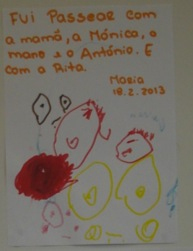 Fui Passear com
a mamã, a Mónica, o
mano e o António. E
com a Rita.
Maria
18.2.2013